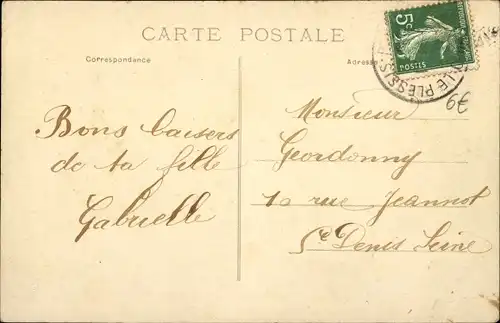 CARTE POSTALE
Correspondance
Adresse
5c
POSTES
LE PLESSIS
6F
Bons baisers
de ta fille
Gabrielle
Monsieur
Geordonny
10 rue Jeannot
St Denis Seine